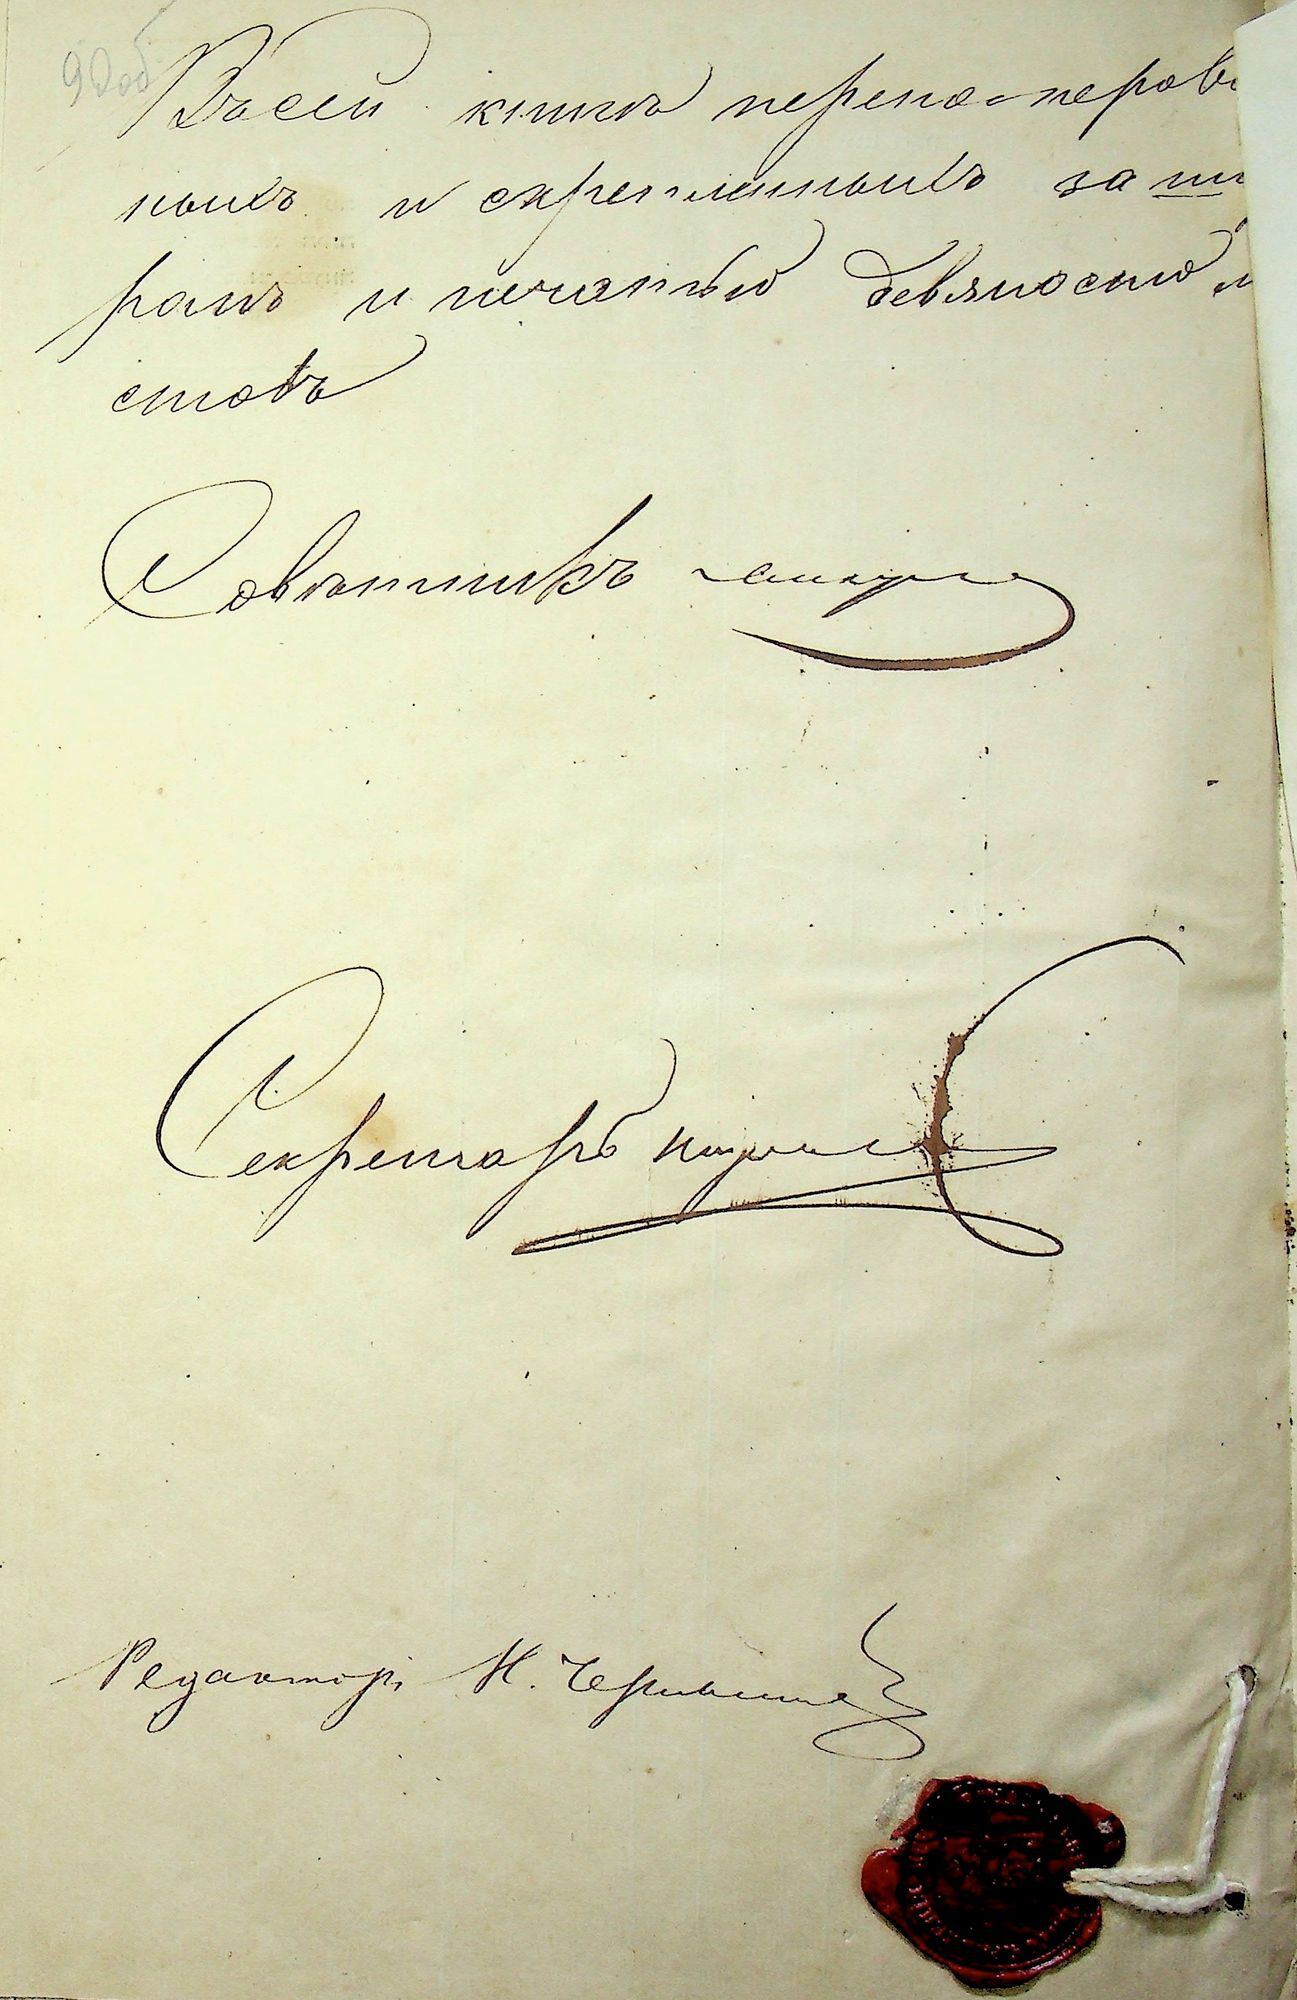 90 об
Въ сей книгѣ перенумеров
ныхъ и скрепленныхъ за шн
ромъ и печатью девяносто ли
стовъ
Совѣтникъ
Секретарь
Редакторъ Н.